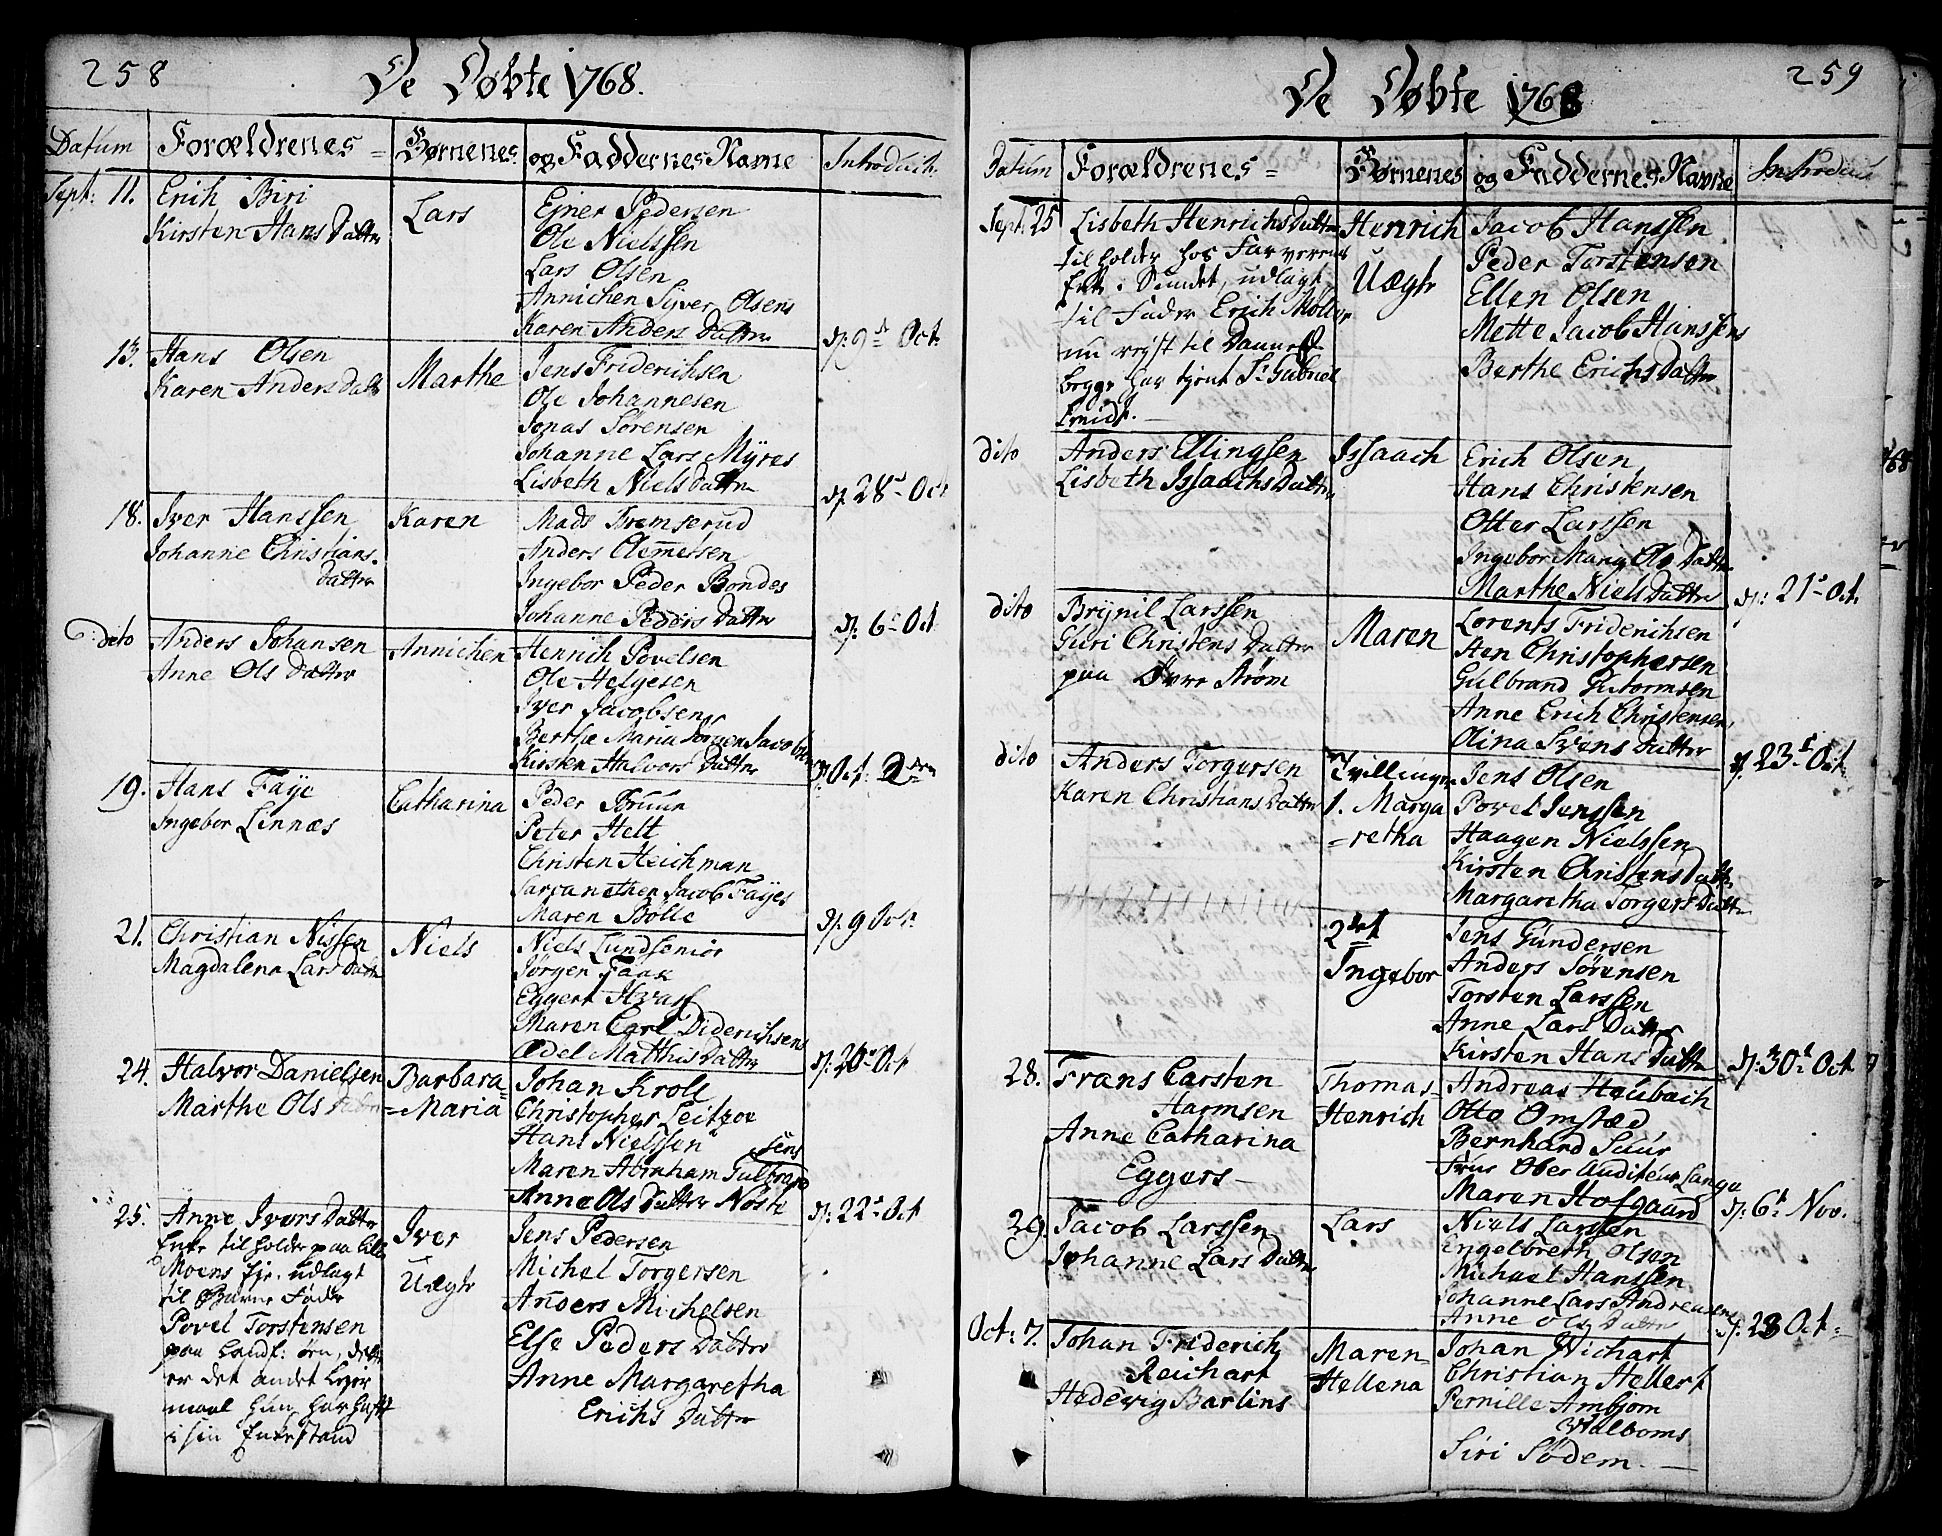 258
De Döbte 1768.
Datum Forældrenes = Börnenes og Faddernes Name Introduct.
Sept: 11. Erich Biri
Kirsten Hans Datter
Lars
Ejner Pedersen
Ole Nielssen
Lars Olsen
Annichen Syver Olsens
Karen Anders Datter
d. 9de Oct.
13. Hans Olsen
Karen Anders Datt
Marthe
Jens Friderichsen
Ole Johannesen
Jonas Sörensen
Johanne Lars Myres
Lisbeth Niels Datter
d. 28de Oct
18. Iver Hanssen
Johanne Christians.
Datter
Karen
Mads Bremserud
Anders Clemetsen
Ingebor Peder Bondes
Johanne Peders Datter
d. 6te Oct
dito Anders Johansen
Anne Ols Datter
Annichen
Henrich Povelsen
Ole Helgesen
Iver Jacobsen
Berthe Maria Jörgen Jacobsen
Kirsten Halvors Datter
Oct. 2den
19. Hans Faye
Ingebor Linnæs
Catharina
Peder Bruun
Peter Helt
Christen Heichman
Jacob Fayes
Maren Bölle
d. 9 Oct.
21. Christian Nissen
Magdalena Lars Datter
Niels
Niels Lund senior
Jörgen Faae
Eggert Hvas
Maren Carl Diderichsens
Ædel Matthis Datter
d. 20de Oct
24. Halvor Danielsen
Marthe Ols Datter
Barbara=
=Maria
Johan Kroll
Christopher Leitzoe
Hans Nielssen
Maren Abraham Gulbrand
sens
Anne Ols Datter Nöste
d. 22de Oct
25. Anne Ivers Datter
Enke til holder paa Lille
Moens Ejr. udlagt
til Barne Fader
Povel Torstensen
paa Landf: örn, dette
er det andet Leyer
maal hun har haft
i sin Enkestand
Iver
Uægte
Jens Pedersen
Michel Torgersen
Anders Michelsen
Else Peders Datter
Anne Margaretha
Erichs Datter
De Döbte 1768
259
Datum Forældrenes = Börnenes og Faddernes Navne Introduct
Sept. 25 Lisbeth Henrichs Datter
til holder hos Farverens
Enke i Sundet, udlagt
til Fader Erich Möller
nu reyst til Danmark
begge har tjent Sr. Gabriel
Smidt. —
Henrich
Uægte
Jacob Hanssen
Peder Torstensen
Ellen Olsen
Mette Jacob Hanssens
Berthe Erichs Datter
dito Anders Ellingsen
Lisbeth Issaachs Datter
Issaach
Erich Olsen
Hans Christensen
Otter Larssen
Ingebor Mang Ols Datter
Marthe Niels Datter
d. 21de Oct.
dito Brynil Larssen
Guri Christens Datter
paa Övre Ström
Maren
Lorents Friderichsen
Sten Christophersen
Gulbrand Gutormsen
Anne Erich Christensens
Olina Svens Datter
d. 23de Oct
dito Anders Torgersen
Karen Christians Datter
Tvillinger
1. Marga
=retha
Jens Olsen
Povel Jenssen
Haagen Nielssen
Kirsten Christens Datter
Margaretha Torgers Datter
2det
Ingebor
Jens Gundersen
Anders Sörensen
Torsten Larssen
Anne Lars Datter
Kirsten Hans Datter
d. 30te Oct
28. Frans Carsten
Harmsen
Anne Catharina
Eggers —
Thomas=
Henrich
Andreas Heubach
Otto Omsted
Bernhard Suur
Frue Ober Auditeur Lange
Maren Hofgaard
d. 6te Nov.
29. Jacob Larssen
Johanne Lars Datter
Lars
Niels Larssen
Engelbreth Olsen
Michael Hanssen
Johanne Lars Andreasens
Anne Ols Datter
d. 23 Oct.
Oct: 7. Johan Friderich
Reichart
Hedevig Barlins
Maren=
Hellena
Johan Wichart
Christian Hellert
Pernille Ambjorn
Walboms
Siri Södem. —